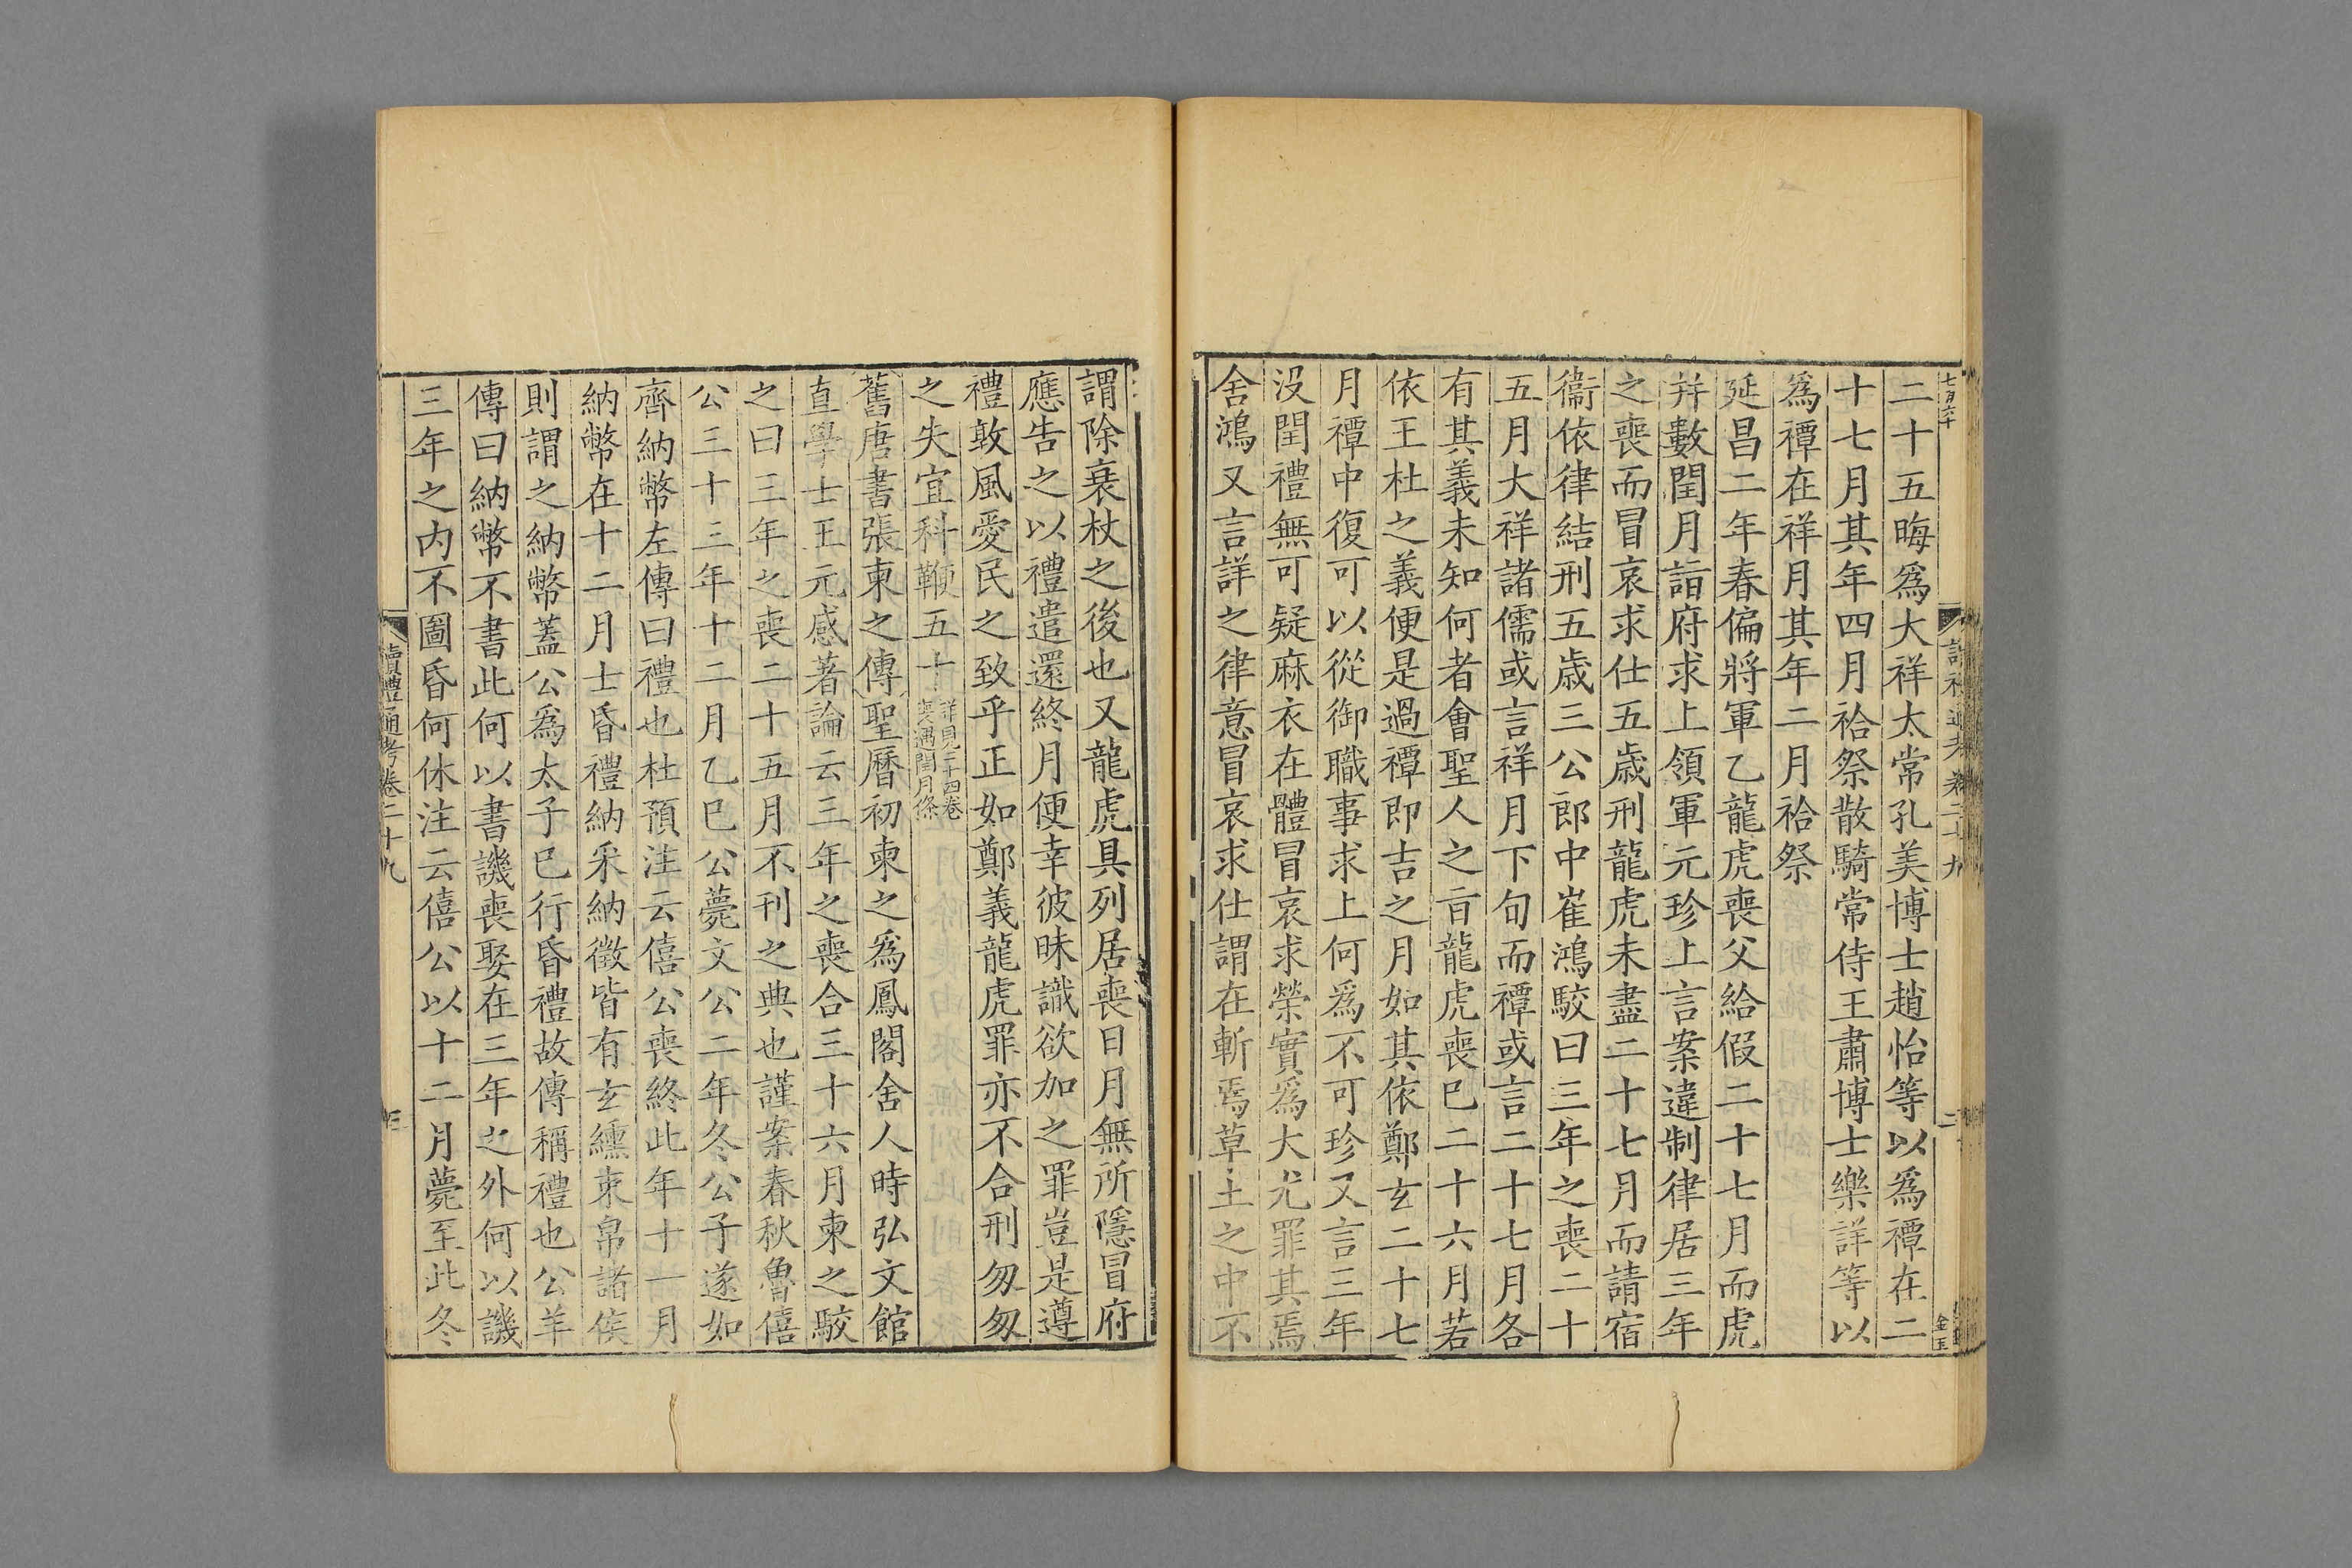 二十五晦爲大祥太常孔美博士趙怡等以爲禫在二
十七月其年四月祫祭散騎常侍王肅博士樂詳等以
爲禫在祥月其年二月祫祭
延昌二年春偏將軍乙龍虎喪父給假二十七月而虎
并數閏月詣府求上領軍元珍上言案違制律居三年
之喪而冒哀求仕五歳刑龍虎未盡二十七月而請宿
衞依律結刑五歳三公郎中崔鴻駮曰三年之喪二十
五月大祥諸儒或言祥月下旬而禫或言二十七月各
有其義未知何者會聖人之㫖龍虎喪巳二十六月若
依王杜之義便是過禫即吉之月如其依鄭玄二十七
月禫中復可以從御職事求上何爲不可珍又言三年
没閏禮無可疑麻衣在體冒哀求榮實爲大尤罪其焉
舍鴻又言詳之律意冒哀求仕謂在斬焉草土之中不
謂除衰杖之後也又龍虎具列居喪日月無所隱冒府
應告之以禮遣還終月便幸彼昧識欲加之罪豈是遵
禮敦風愛民之致乎正如鄭義龍虎罪亦不合刑匆匆
之失宜科鞭五十詳見二十四卷喪遇閏月條
舊唐書張柬之傳聖曆初柬之爲鳳閣舍人時弘文館
直學士王元感著論云三年之喪合三十六月柬之駮
之曰三年之喪二十五月不刊之典也謹案春秋魯僖
公三十三年十二月乙巳公薨文公二年冬公子遂如
齊納幣左傳曰禮也杜預注云僖公喪終此年十一月
納幣在十二月士昏禮納采納徵皆有玄纁束帛諸侯
則謂之納幣蓋公爲太子已行昏禮故傳稱禮也公羊
傳曰納幣不書此何以書譏喪娶在三年之外何以譏
三年之内不圖昏何休注云僖公以十二月薨至此冬
讀禮通考卷二十九
三